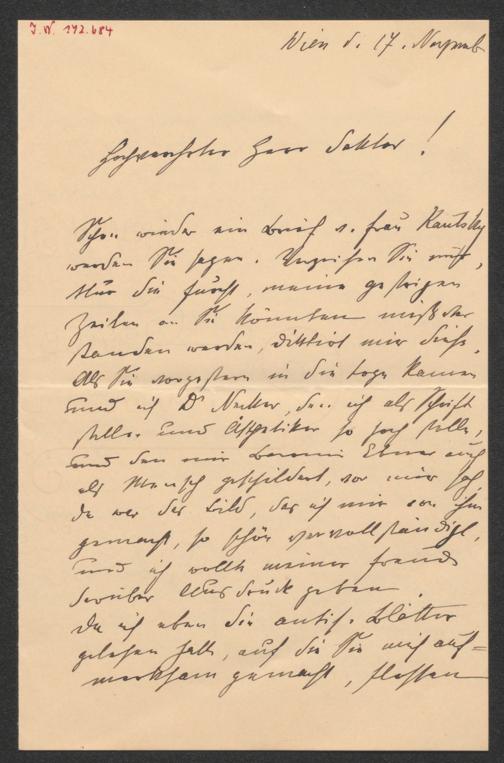 J.N. 142.684
Wien d. 17. Novemb
Hochverehrter Herr Doktor!
Schon wieder ein Brief v. Frau Kautsky
werden Sie sagen. Verzeihen Sie mir,
Nur die Furcht, meine gestrigen
Zeilen an Sie könnten mißver
standen werden, diktirt mir diese.
Als Sie vorgestern in die Loge kamen
und ich Dr Necker, den ich als Schrift
steller und Ästhetiker so hoch stelle,
und den mir Baronin Ebner auch
als Mensch geschildert, vor mir sah
da war das Bild, das ich mir von ihm
gemacht, so schön vervollständigt,
und ich wollte meiner Freude
darüber Ausdruck geben.
Da ich eben die Blätter
gelesen hatte, auf die Sie mich auf=
merksam gemacht, flossen